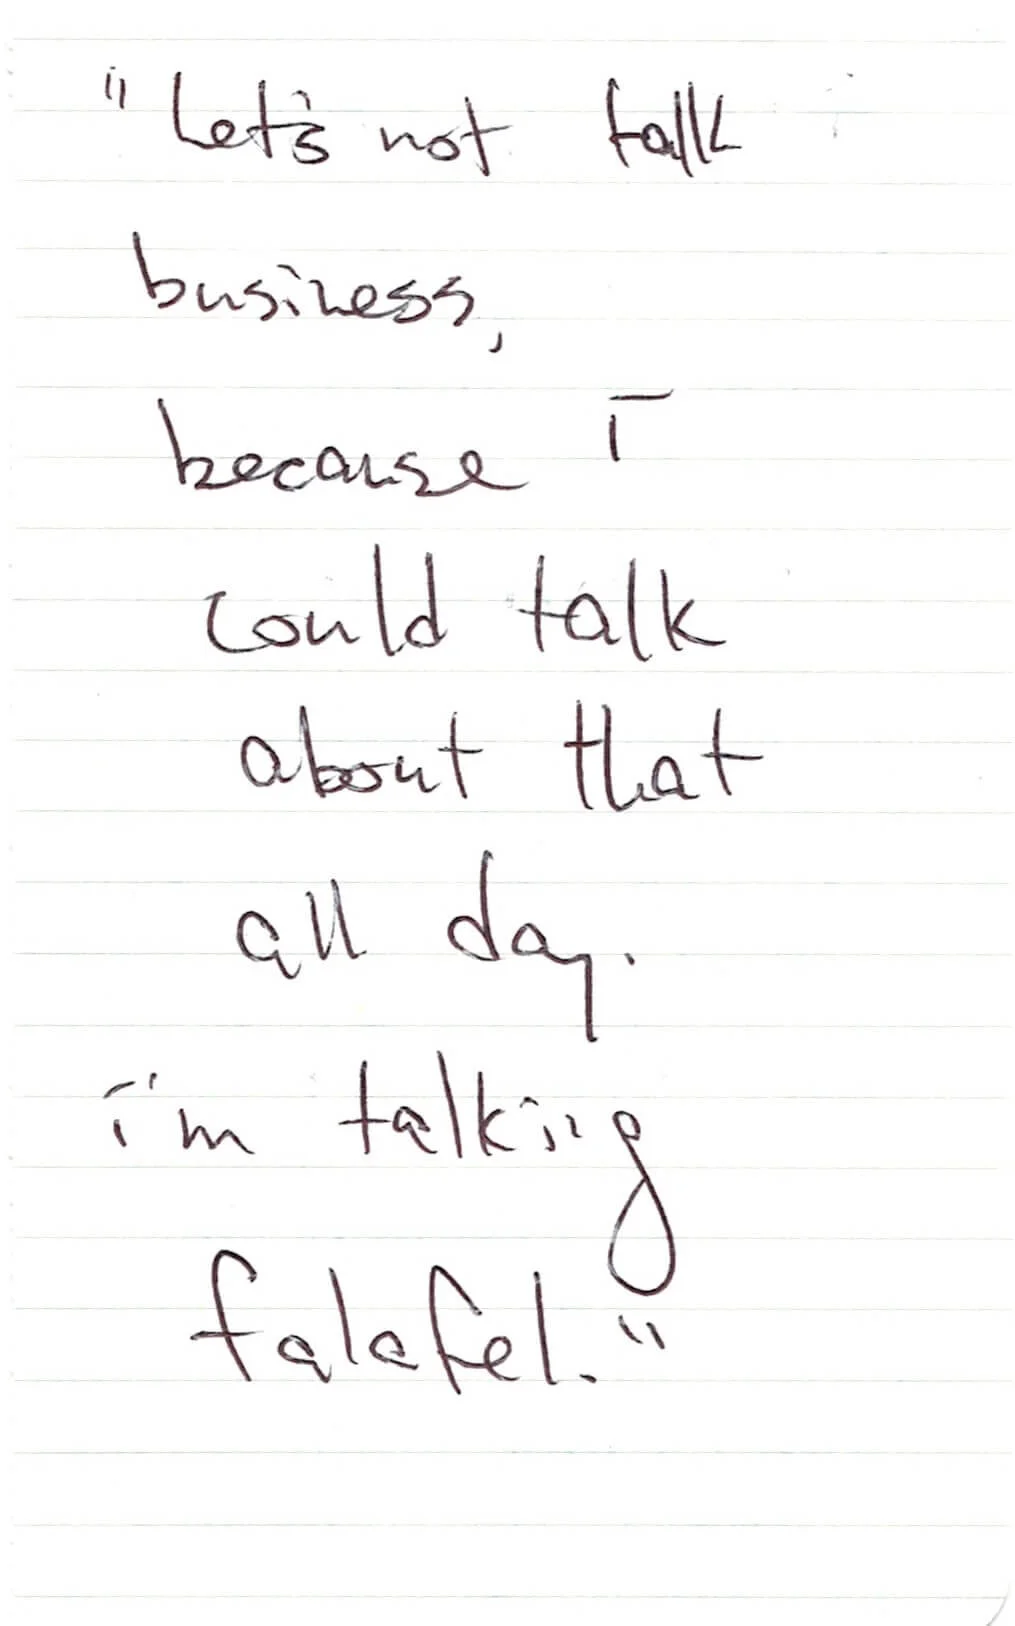 "Let's not talk
business,
because I
could talk
about that
all day.
i'm talking
falafel."